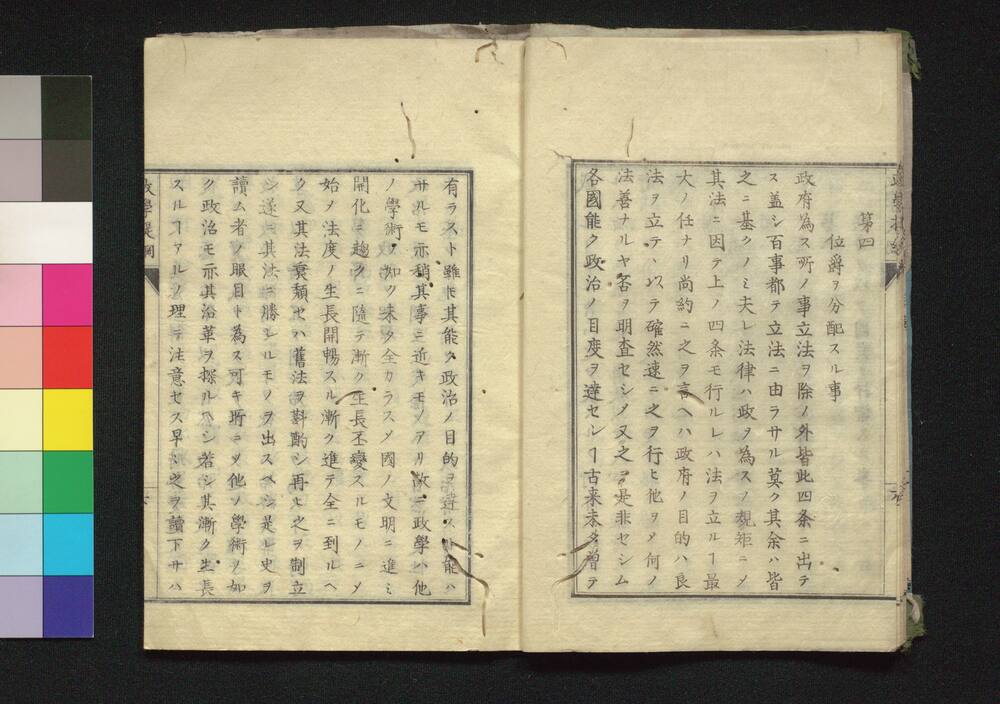 第四
位爵ヲ分配スル事
政府為ス所ノ事立法ヲ除ノ外皆此四条ニ出テ
ス盖シ百事都テ立法ニ由ラサル莫ク其余ハ皆
之ニ基クノミ夫レ法律ハ政ヲ為スノ規矩ニメ
其法ニ因テ上ノ四条モ行ルレハ法ヲ立ルヿ最
大ノ任ナリ尚約ニ之ヲ言ヘハ政府ノ目的ハ良
法ヲ立テ、以テ確然速ニ之ヲ行ヒ他ヲメ何ノ
法善ナルヤ否ヲ明査セシメ又之ヲ是非セシム
各國能ク政治ノ目度ヲ達セシヿ古来未タ曽テ
有ラスト雖𪜈其能ク政治ノ目的ヲ達スル能ハ
サルモ亦稍其事ニ近キモノアリ故ニ政學ハ他
ノ學術ノ如ク未タ全カラスメ國ノ文明ニ進ミ
開化ニ趨クニ隨テ漸ク生長丕變スルモノニメ
始ノ法度ノ生長開暢スル漸ク進テ全ニ到ルヘ
ク又其法衰頽セハ舊法ヲ斟酌シ再ヒ之ヲ制立
シ遂ニ其法ニ勝レルモノヲ出スヘシ是レ史ヲ
讀ム者ノ眼目ト為ス可キ所ニメ他ノ學術ノ如
ク政治モ亦其沿革ヲ探ルヘシ若シ其漸ク生長
スルヿアルノ理ヲ注意セス早ミ之ヲ讀下サハ
政學提綱